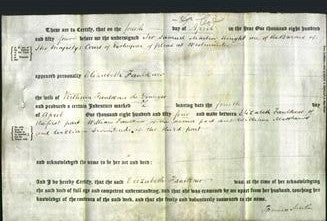 These are to Certify, that on the fourth day of April in the Year One thousand eight hundred
and fifty four before me the undersigned Sir Samuel Martin Knight one of the Barons of
Her Majesty's Court of Exchequer of Pleas at Westminster
appeared personally Elizabeth Faulkner
the wife of William Faulkner the Younger
and produced a certain Indenture marked bearing date the fourth day
of April One thousand eight hundred and fifty four and made between Elizabeth Faulkner of
the first part William Faulkner of the second part
and of the third part
and acknowledged the same to be her act and deed:
And I do hereby Certify, that the said Elizabeth Faulkner was at the time of her acknowledging
the said deed of full age and competent understanding, and that she was examined by me apart from her husband, touching her
knowledge of the contents of the said deed, and that she freely and voluntarily consented to the same.